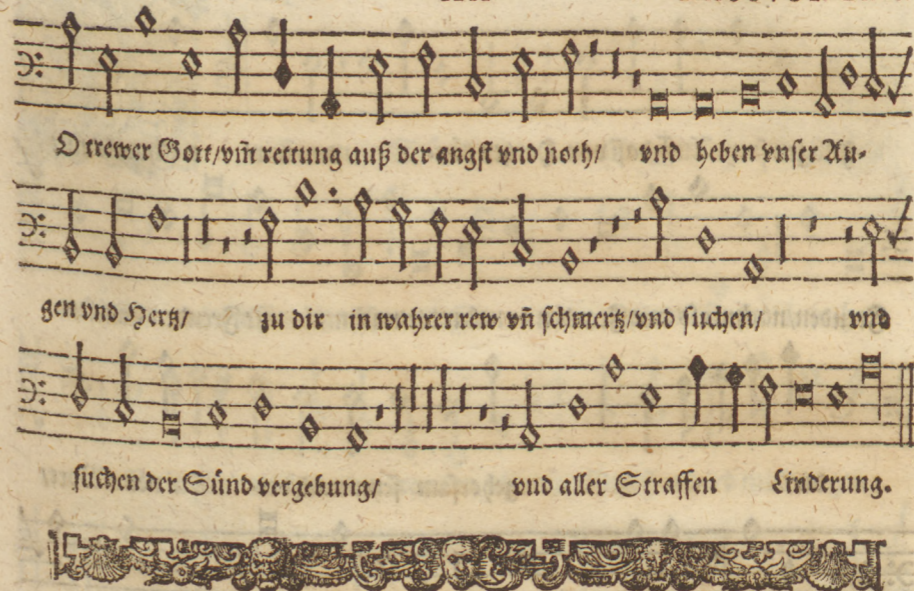 O trewer Gott/vm̃ rettung auß der angst vnd noth/ vnd heben vnser Au-
gen vnd Hertz/ zu dir in wahrer rew vñ schmertz/vnd suchen/ vnd
suchen der Sünd vergebung/ vnd aller Straffen Linderung.